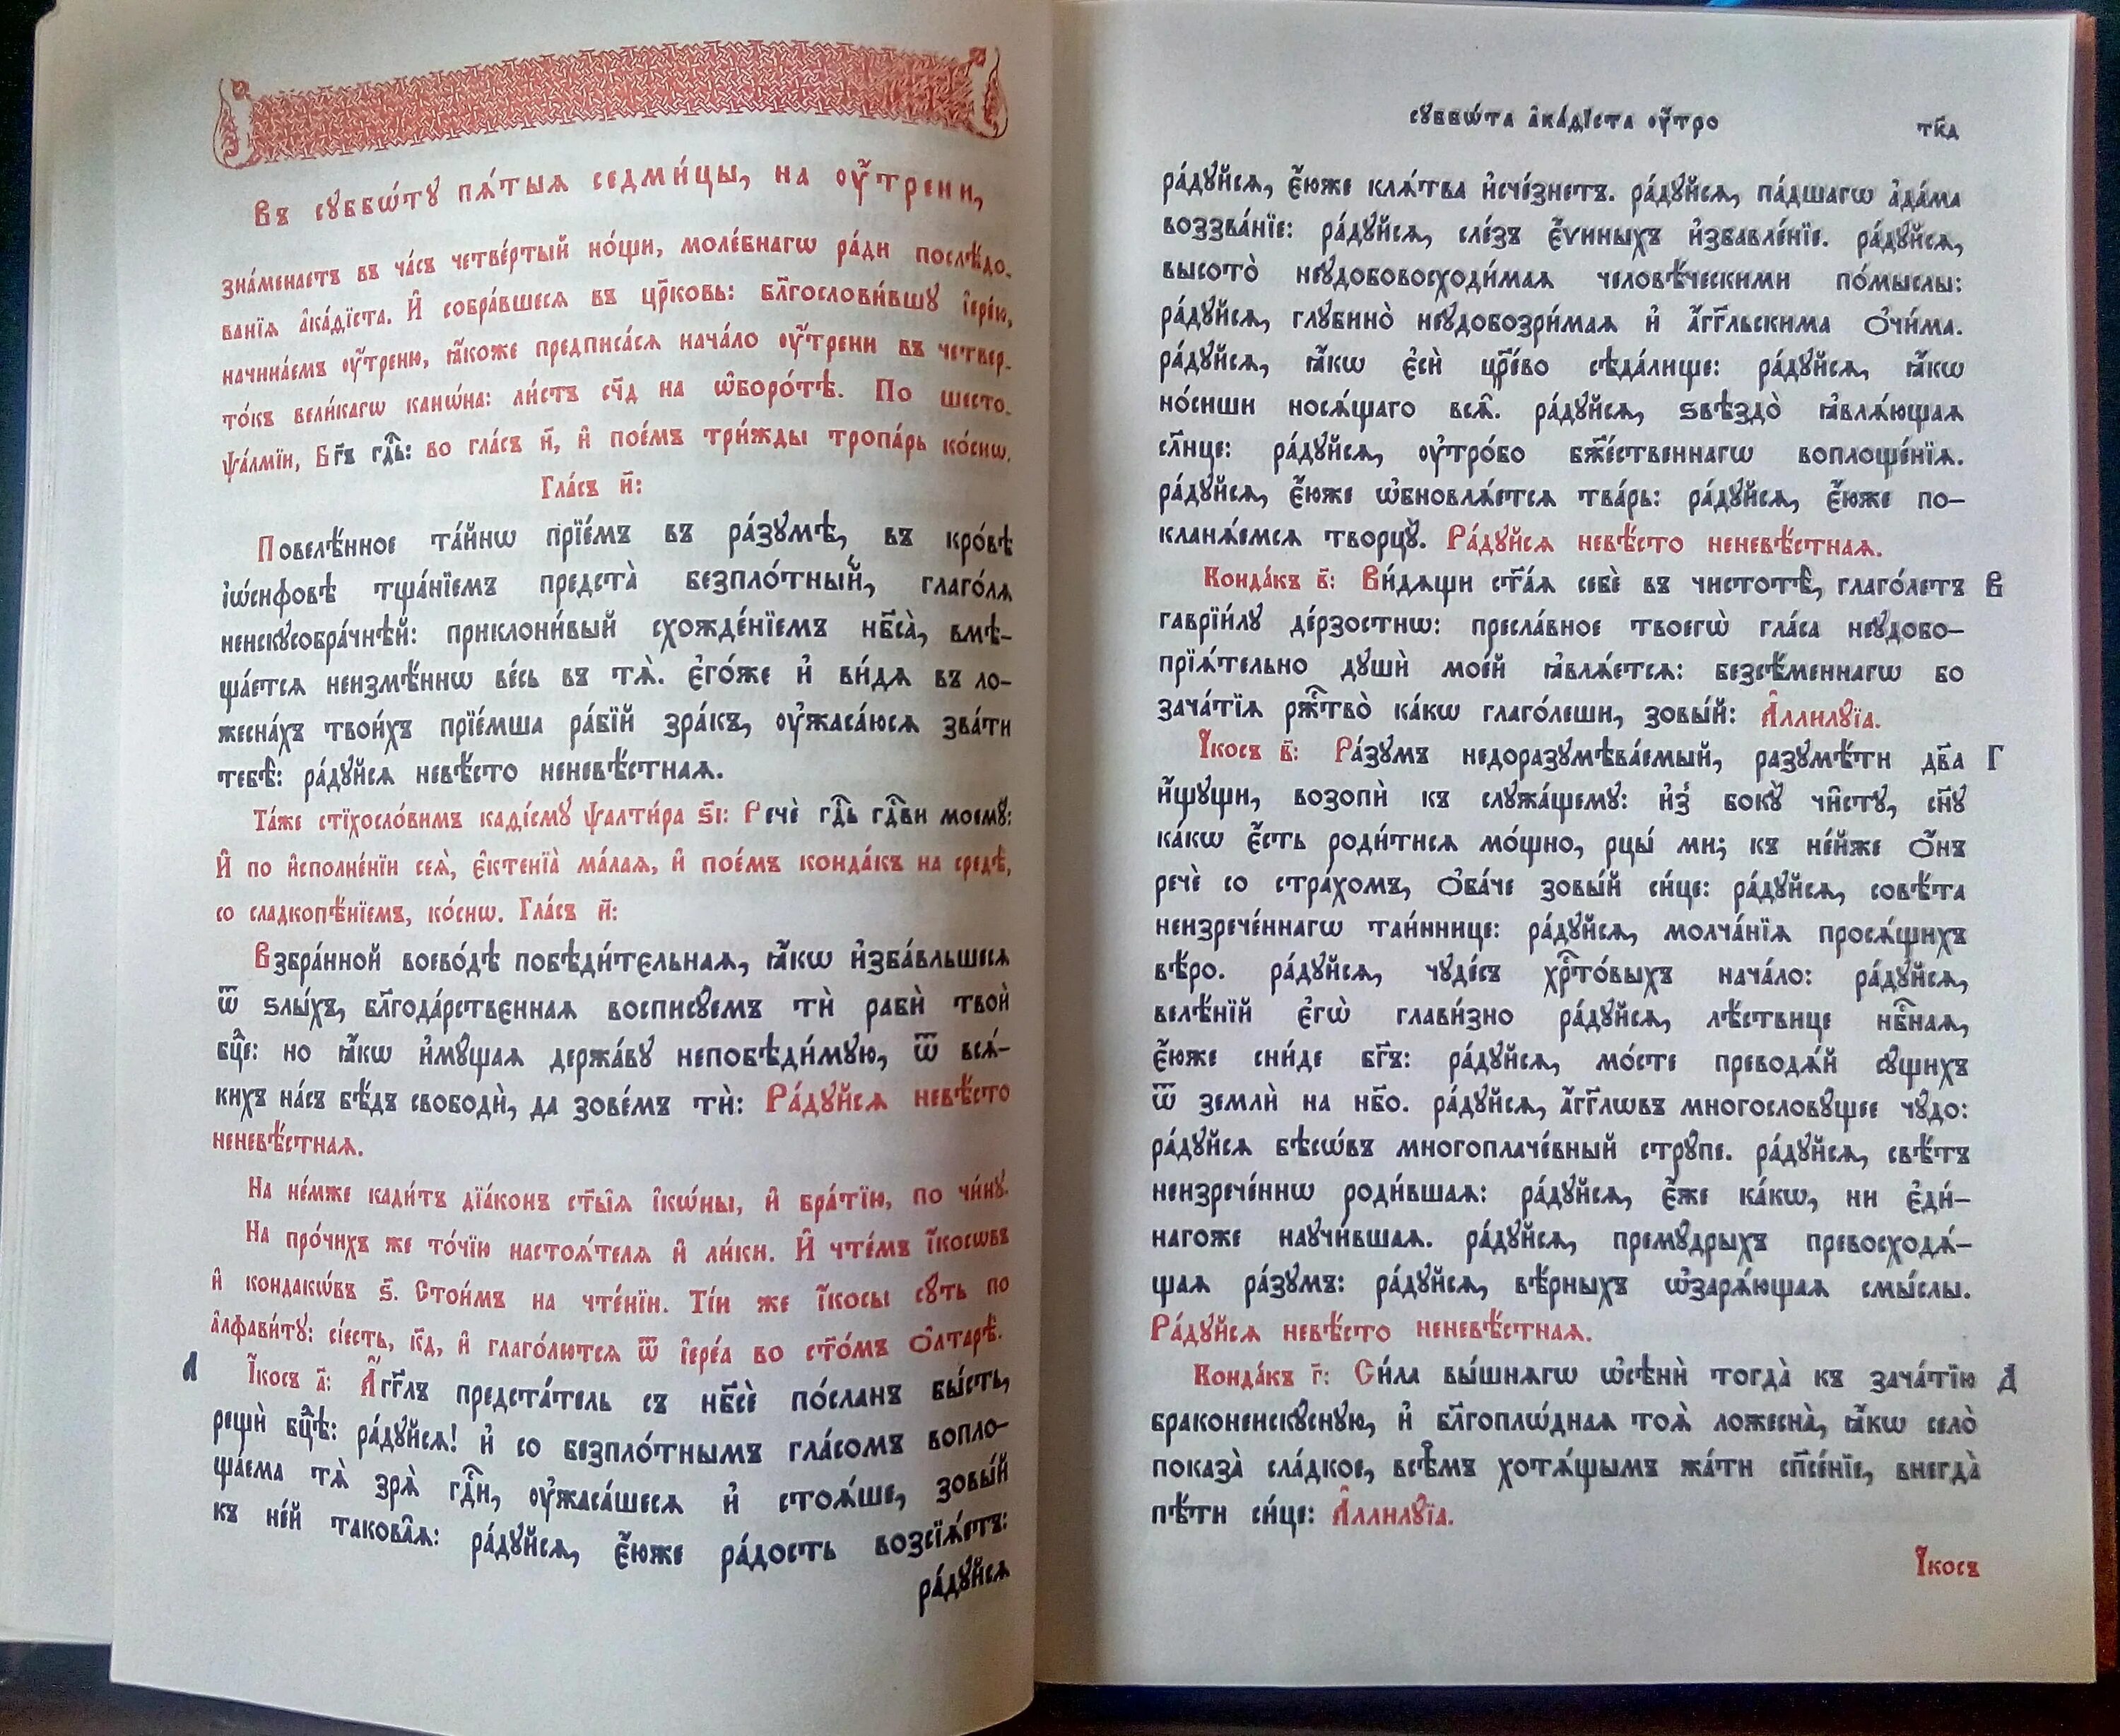 Въ сꙋббѡ́тꙋ пѧ́тыѧ седми́цы, на ᲂу҆́трени,
зна́менаетъ въ ча́съ четве́ртый но́щи, моле́бнагѡ ра́ди послѣ́до-
ванїѧ а҆ка́ѳїста. И҆ собра́вшесѧ въ цр҃ковь: бл҃гослови́вшꙋ і҆ере́ю,
начина́емъ ᲂу҆́треню, ꙗ҆́коже предписа́сѧ нача́ло ᲂу҆́трени въ четвер-
то́къ вели́кагѡ канѡ́на: ли́стъ сч҃д на ѡ҆боро́тѣ. По шесто-
ѱа́лмїи, Бг҃ъ гдⷭ҇ь: во гла́съ и҃, и҆ пое́мъ три́жды тропа́рь ко́снѡ.
Гла́съ и҃:
Повелѣ́нное та́йнѡ прїе́мъ въ ра́зꙋмѣ, въ кро́вѣ
і҆ѡ́сифовѣ тща́нїемъ предста̀ безпло́тный, глаго́лѧ
неискꙋсобра́чнѣй: приклони́вый схожде́нїемъ нб҃са̀, вмѣ-
ща́етсѧ неизмѣ́ннѡ ве́сь въ тѧ̀. є҆го́же и҆ ви́дѧ въ ло-
жесна́хъ твои́хъ прїе́мша ра́бїй зра́къ, ᲂу҆жаса́юсѧ зва́ти
тебѣ̀: ра́дꙋйсѧ невѣ́сто неневѣ́стнаѧ.
Та́же стїхосло́вимъ каѳі́смꙋ ѱалти́ра ѕ҃і: Речѐ гдⷭ҇ь гдⷭ҇ви моемꙋ̀:
И҆ по и҆сполне́нїи сеѧ̀, є҆ктенїа̀ ма́лаѧ, и҆ пое́мъ конда́къ на средѣ̀,
со сладкопѣ́нїемъ, ко́снѡ. Гла́съ и҃:
Взбра́нной воево́дѣ побѣди́тєльнаѧ, ꙗ҆́кѡ и҆зба́вльшесѧ
ѿ ѕлы́хъ, бл҃года́рствєннаѧ восписꙋ́емъ тѝ рабѝ твоѝ
бцⷣе: но ꙗ҆́кѡ и҆мꙋ́щаѧ держа́вꙋ непобѣди́мꙋю, ѿ всѧ́-
кихъ на́съ бѣ́дъ свободѝ, да зове́мъ тѝ: Ра́дꙋйсѧ невѣ́сто
неневѣ́стнаѧ.
На не́мже кади́тъ дїа́конъ ст҃ы̑ѧ і҆кѡ́ны, и҆ бра́тїю, по чи́нꙋ.
На про́чихъ же то́чїю настоѧ́телѧ и҆ ли́ки. И҆ чте́мъ і҆́косѡвъ
и҆ кондакѡ́въ ѕ҃. Стои́мъ на чте́нїи. Ті́и же і҆́косы сꙋ́ть по
а҆лфави́тꙋ: сіе́сть, к҃д, и҆ глаго́лютсѧ ѿ і҆ере́а во ст҃о́мъ ѻ҆лтарѣ̀.
А І҆́косъ а҃: А҆́гг҃лъ предста́тель съ нб҃сѐ по́сланъ бы́сть,
рещѝ бцⷣѣ: ра́дꙋйсѧ! и҆ со безпло́тнымъ гла́сомъ вопло-
ща́ема тѧ̀ зрѧ̀ гдⷭ҇и, ᲂу҆жаса́шесѧ и҆ стоѧ́ше, зовы́й
къ не́й такова̑ѧ: ра́дꙋйсѧ, є҆́юже ра́дость возсїѧ́етъ:
ра́дꙋйсѧ
сꙋббѡ́та а҆ка́ѳїста ᲂу҆́тро тк҃д
ра́дꙋйсѧ, є҆́юже клѧ́тва и҆сче́знетъ. ра́дꙋйсѧ, па́дшагѡ а҆да́ма
воззва́нїе: ра́дꙋйсѧ, сле́зъ є҆́ѵиныхъ и҆збавле́нїе. ра́дꙋйсѧ,
высото̀ неꙋдобовосходи́маѧ человѣ́ческими по́мыслы:
ра́дꙋйсѧ, глꙋбино̀ неꙋдобозри́маѧ и҆ а҆́гг҃льскима ѻ҆чи́ма.
ра́дꙋйсѧ, ꙗ҆́кѡ є҆сѝ цр҃е́во сѣда́лище: ра́дꙋйсѧ, ꙗ҆́кѡ
но́сиши носѧ́щаго всѧ̑. ра́дꙋйсѧ, ѕвѣздо̀ ꙗ҆влѧ́ющаѧ
сл҃нце: ра́дꙋйсѧ, ᲂу҆тро́бо бж҃е́ственнагѡ воплоще́нїѧ.
ра́дꙋйсѧ, є҆́юже ѡ҆бновлѧ́етсѧ тва́рь: ра́дꙋйсѧ, є҆́юже по-
кланѧ́емсѧ творцꙋ̀. Ра́дꙋйсѧ невѣ́сто неневѣ́стнаѧ.
Конда́къ в҃: Ви́дѧщи ст҃а́ѧ себѐ въ чистотѣ̀, глаго́летъ В
гаврїи́лꙋ де́рзостнѡ: пресла́вное твоегѡ̀ гла́са неꙋдобо-
прїѧ́тельно дꙋшѝ мое́й ꙗ҆влѧ́етсѧ: безсѣ́меннагѡ бо
зача́тїѧ ржⷭ҇тво̀ ка́кѡ глаго́леши, зовы́й: А҆ллилꙋ́їа.
І҆́косъ в҃: Ра́зꙋмъ недоразꙋмѣва́емый, разꙋмѣ́ти дв҃а Г
и҆́щꙋщи, возопѝ къ слꙋжа́щемꙋ: и҆з̾ бокꙋ̀ чи̑стꙋ, сн҃ꙋ
ка́кѡ є҆́сть роди́тисѧ мо́щно, рцы́ ми; къ не́йже ѻ҆́нъ
речѐ со стра́хомъ, ѻ҆ба́че зовы́й си́це: ра́дꙋйсѧ, совѣ́та
неизрече́ннагѡ таи́ннице: ра́дꙋйсѧ, молча́нїѧ просѧ́щихъ
вѣ́ро. ра́дꙋйсѧ, чꙋде́съ хрⷭ҇то́выхъ нача́ло: ра́дꙋйсѧ,
велѣ́нїй є҆гѡ̀ глави́зно ра́дꙋйсѧ, лѣ́ствице нбⷭ҇наѧ,
є҆́юже сни́де бг҃ъ: ра́дꙋйсѧ, мо́сте преводѧ́й сꙋ́щихъ
ѿ землѝ на нб҃о. ра́дꙋйсѧ, а҆́гг҃лѡвъ многословꙋ́щее чꙋ́до:
ра́дꙋйсѧ бѣсѡ́въ многоплаче́вный стрꙋ́пе. ра́дꙋйсѧ, свѣ́тъ
неизрече́ннѡ роди́вшаѧ: ра́дꙋйсѧ, є҆́же ка́кѡ, ни є҆ди́-
нагоже наꙋчи́вшаѧ. ра́дꙋйсѧ, премꙋ́дрыхъ превосходѧ́-
щаѧ ра́зꙋмъ: ра́дꙋйсѧ, вѣ́рныхъ ѡ҆зарѧ́ющаѧ смы́слы.
Ра́дꙋйсѧ невѣ́сто неневѣ́стнаѧ.
Конда́къ г҃: Си́ла вы́шнѧгѡ ѡ҆сѣнѝ тогда̀ къ зача́тїю Д
браконеискꙋ́снꙋю, и҆ бл҃гоплѡ́днаѧ тоѧ̀ ложесна̀, ꙗ҆́кѡ село̀
показа̀ сла́дкое, всѣ̑мъ хотѧ́щымъ жа́ти сп҃се́нїе, внегда̀
пѣ́ти си́це: А҆ллилꙋ́їа.
І҆́косъ